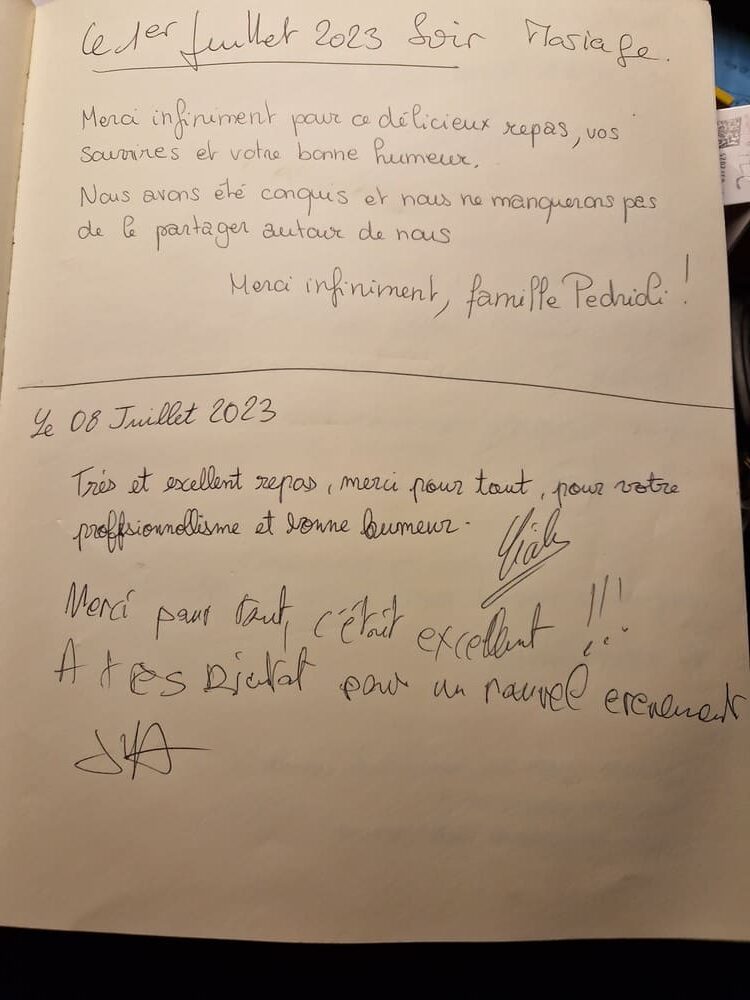 Ce 1er Juillet 2023 Soir Mariage.
Merci infiniment pour ce délicieux repas, vos
sourires et votre bonne humeur.
Nous avons été conquis et nous ne manquerons pas
de le partager autour de nous
Merci infiniment, famille !
Le 08 Juillet 2023
Très et excellent repas, merci pour tout, pour votre
proffsionnellisme et bonne humeur.
Merci pour tout, c'était excellent !!!
A très bientot pour un nouvel evenement